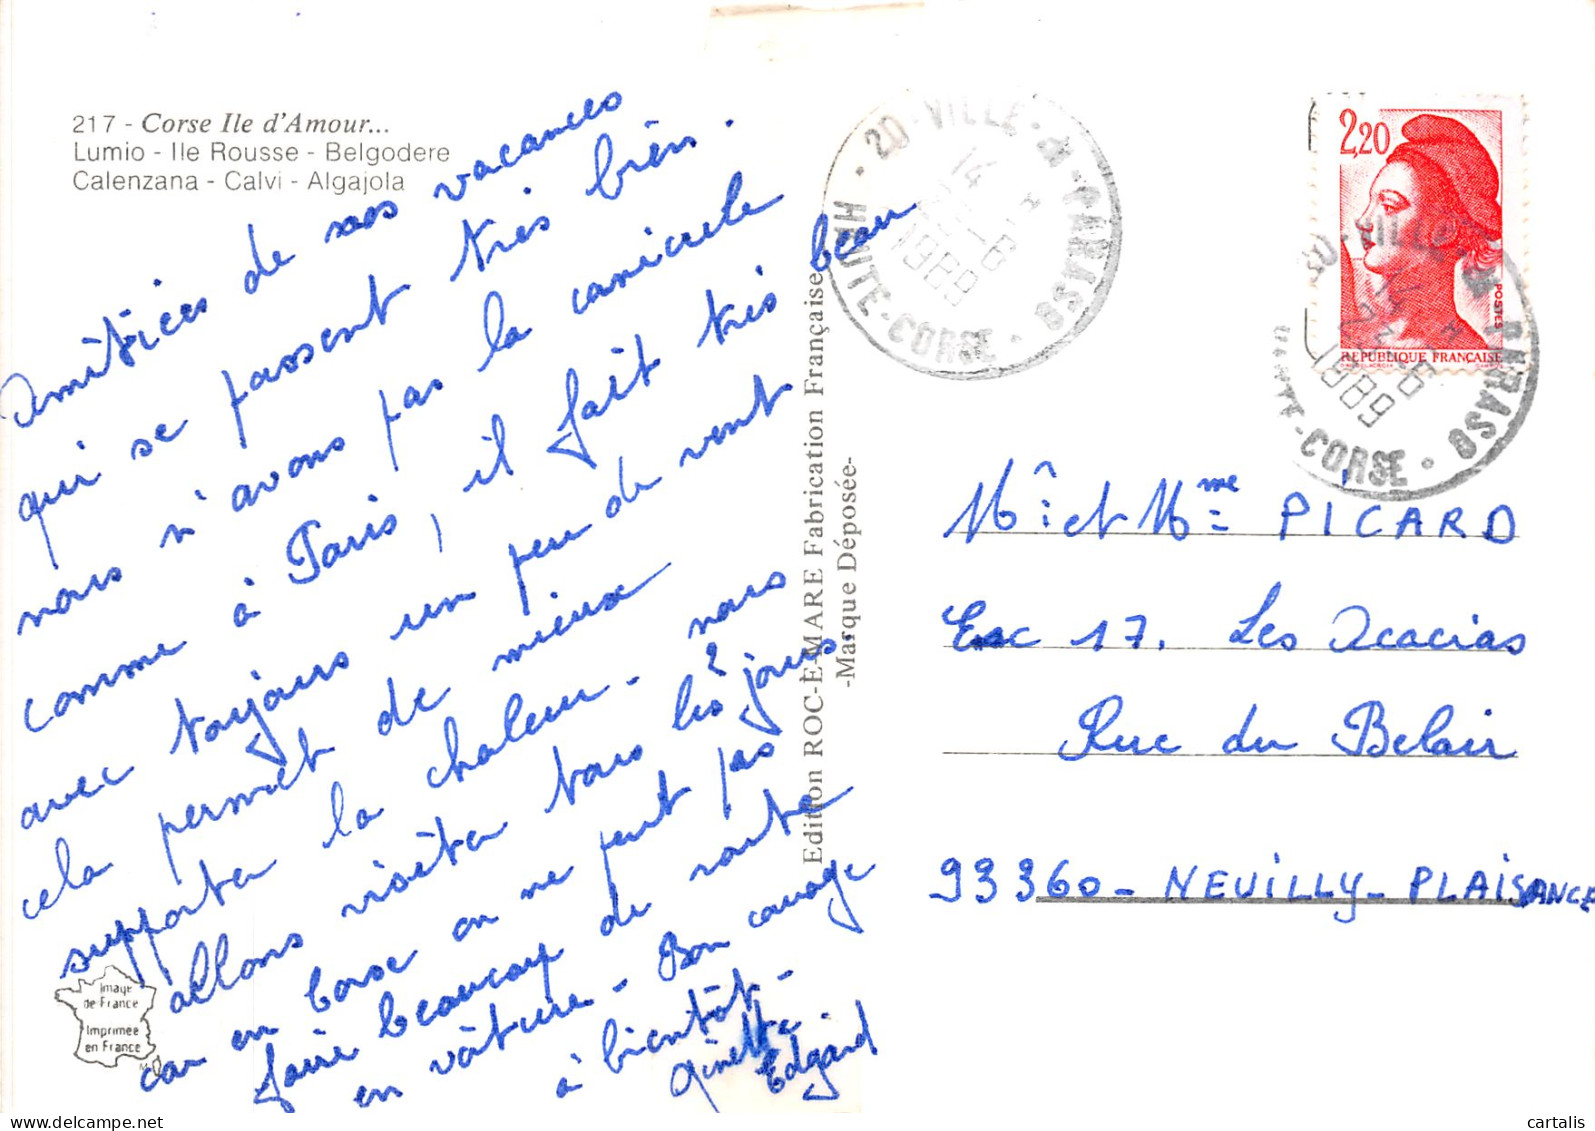 217 - Corse Ile d'Amour...
Lumio - Ile Rousse - Belgodere
Calenzana - Calvi - Algajola
Amitiées de nos vacances
qui se passent très bien.
nous n'avons pas la canicule
comme à Paris, il fait très beau
avec toujours un peu de vent
cela permet de mieux
supporter la chaleur - nous
allons visiter tous les 2 jours.
car en Corse on ne peut pas
faire beaucoup de route
en voiture - Bon courage
à bientôt -
Ginette
Edgard
Image
de France
Imprimée
en France
Edition ROC-E-MARE Fabrication Française
-Marque Déposée-
20 - VILLE-DI-PARASO
14 H
1989
HAUTE-CORSE
2,20
POSTES
REPUBLIQUE FRANÇAISE
VILLE
PARASO
1989
HAUTE-CORSE
Mr et Mme PICARD
Esc 17. Les Acacias
Rue du Belair
93360 - NEUILLY - PLAISANCE
cartalis